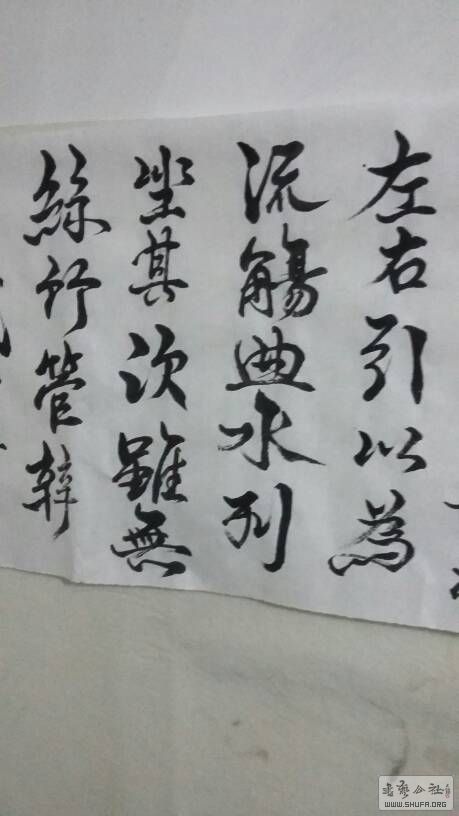 左右引以為
流觴曲水列
坐其次雖無
絲竹管弦
書藝公社
WWW.SHUFA.ORG